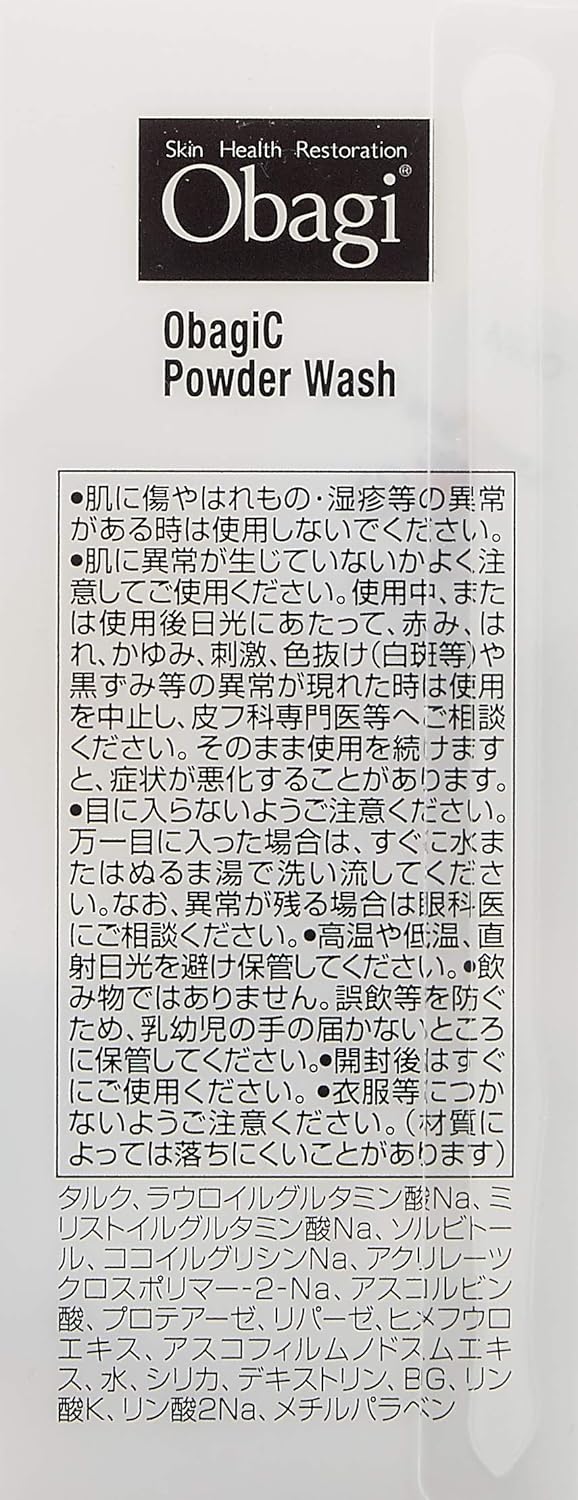 Skin Health Restoration
Obagi®
ObagiC
Powder Wash
•肌に傷やはれもの・湿疹等の異常
がある時は使用しないでください。
•肌に異常が生じていないかよく注
意してご使用ください。使用中、また
は使用後日光にあたって、赤み、は
れ、かゆみ、刺激、色抜け(白斑等)や
黒ずみ等の異常が現れた時は使用
を中止し、皮フ科専門医等へご相談
ください。そのまま使用を続けます
と、症状が悪化することがあります。
•目に入らないようご注意ください。
万一目に入った場合は、すぐに水ま
たはぬるま湯で洗い流してくださ
い。なお、異常が残る場合は眼科医
にご相談ください。•高温や低温、直
射日光を避け保管してください。•飲
み物ではありません。誤飲等を防ぐ
ため、乳幼児の手の届かないところ
に保管してください。•開封後はすぐ
にご使用ください。•衣服等につか
ないようご注意ください。(材質に
よっては落ちにくいことがあります)
タルク、ラウロイルグルタミン酸Na、ミ
リストイルグルタミン酸Na、ソルビトー
ル、ココイルグリシンNa、アクリレーツ
クロスポリマー-2-Na、アスコルビン
酸、プロテアーゼ、リパーゼ、ヒメフウロ
エキス、アスコフィルムノドスムエキ
ス、水、シリカ、デキストリン、BG、リン
酸K、リン酸2Na、メチルパラベン